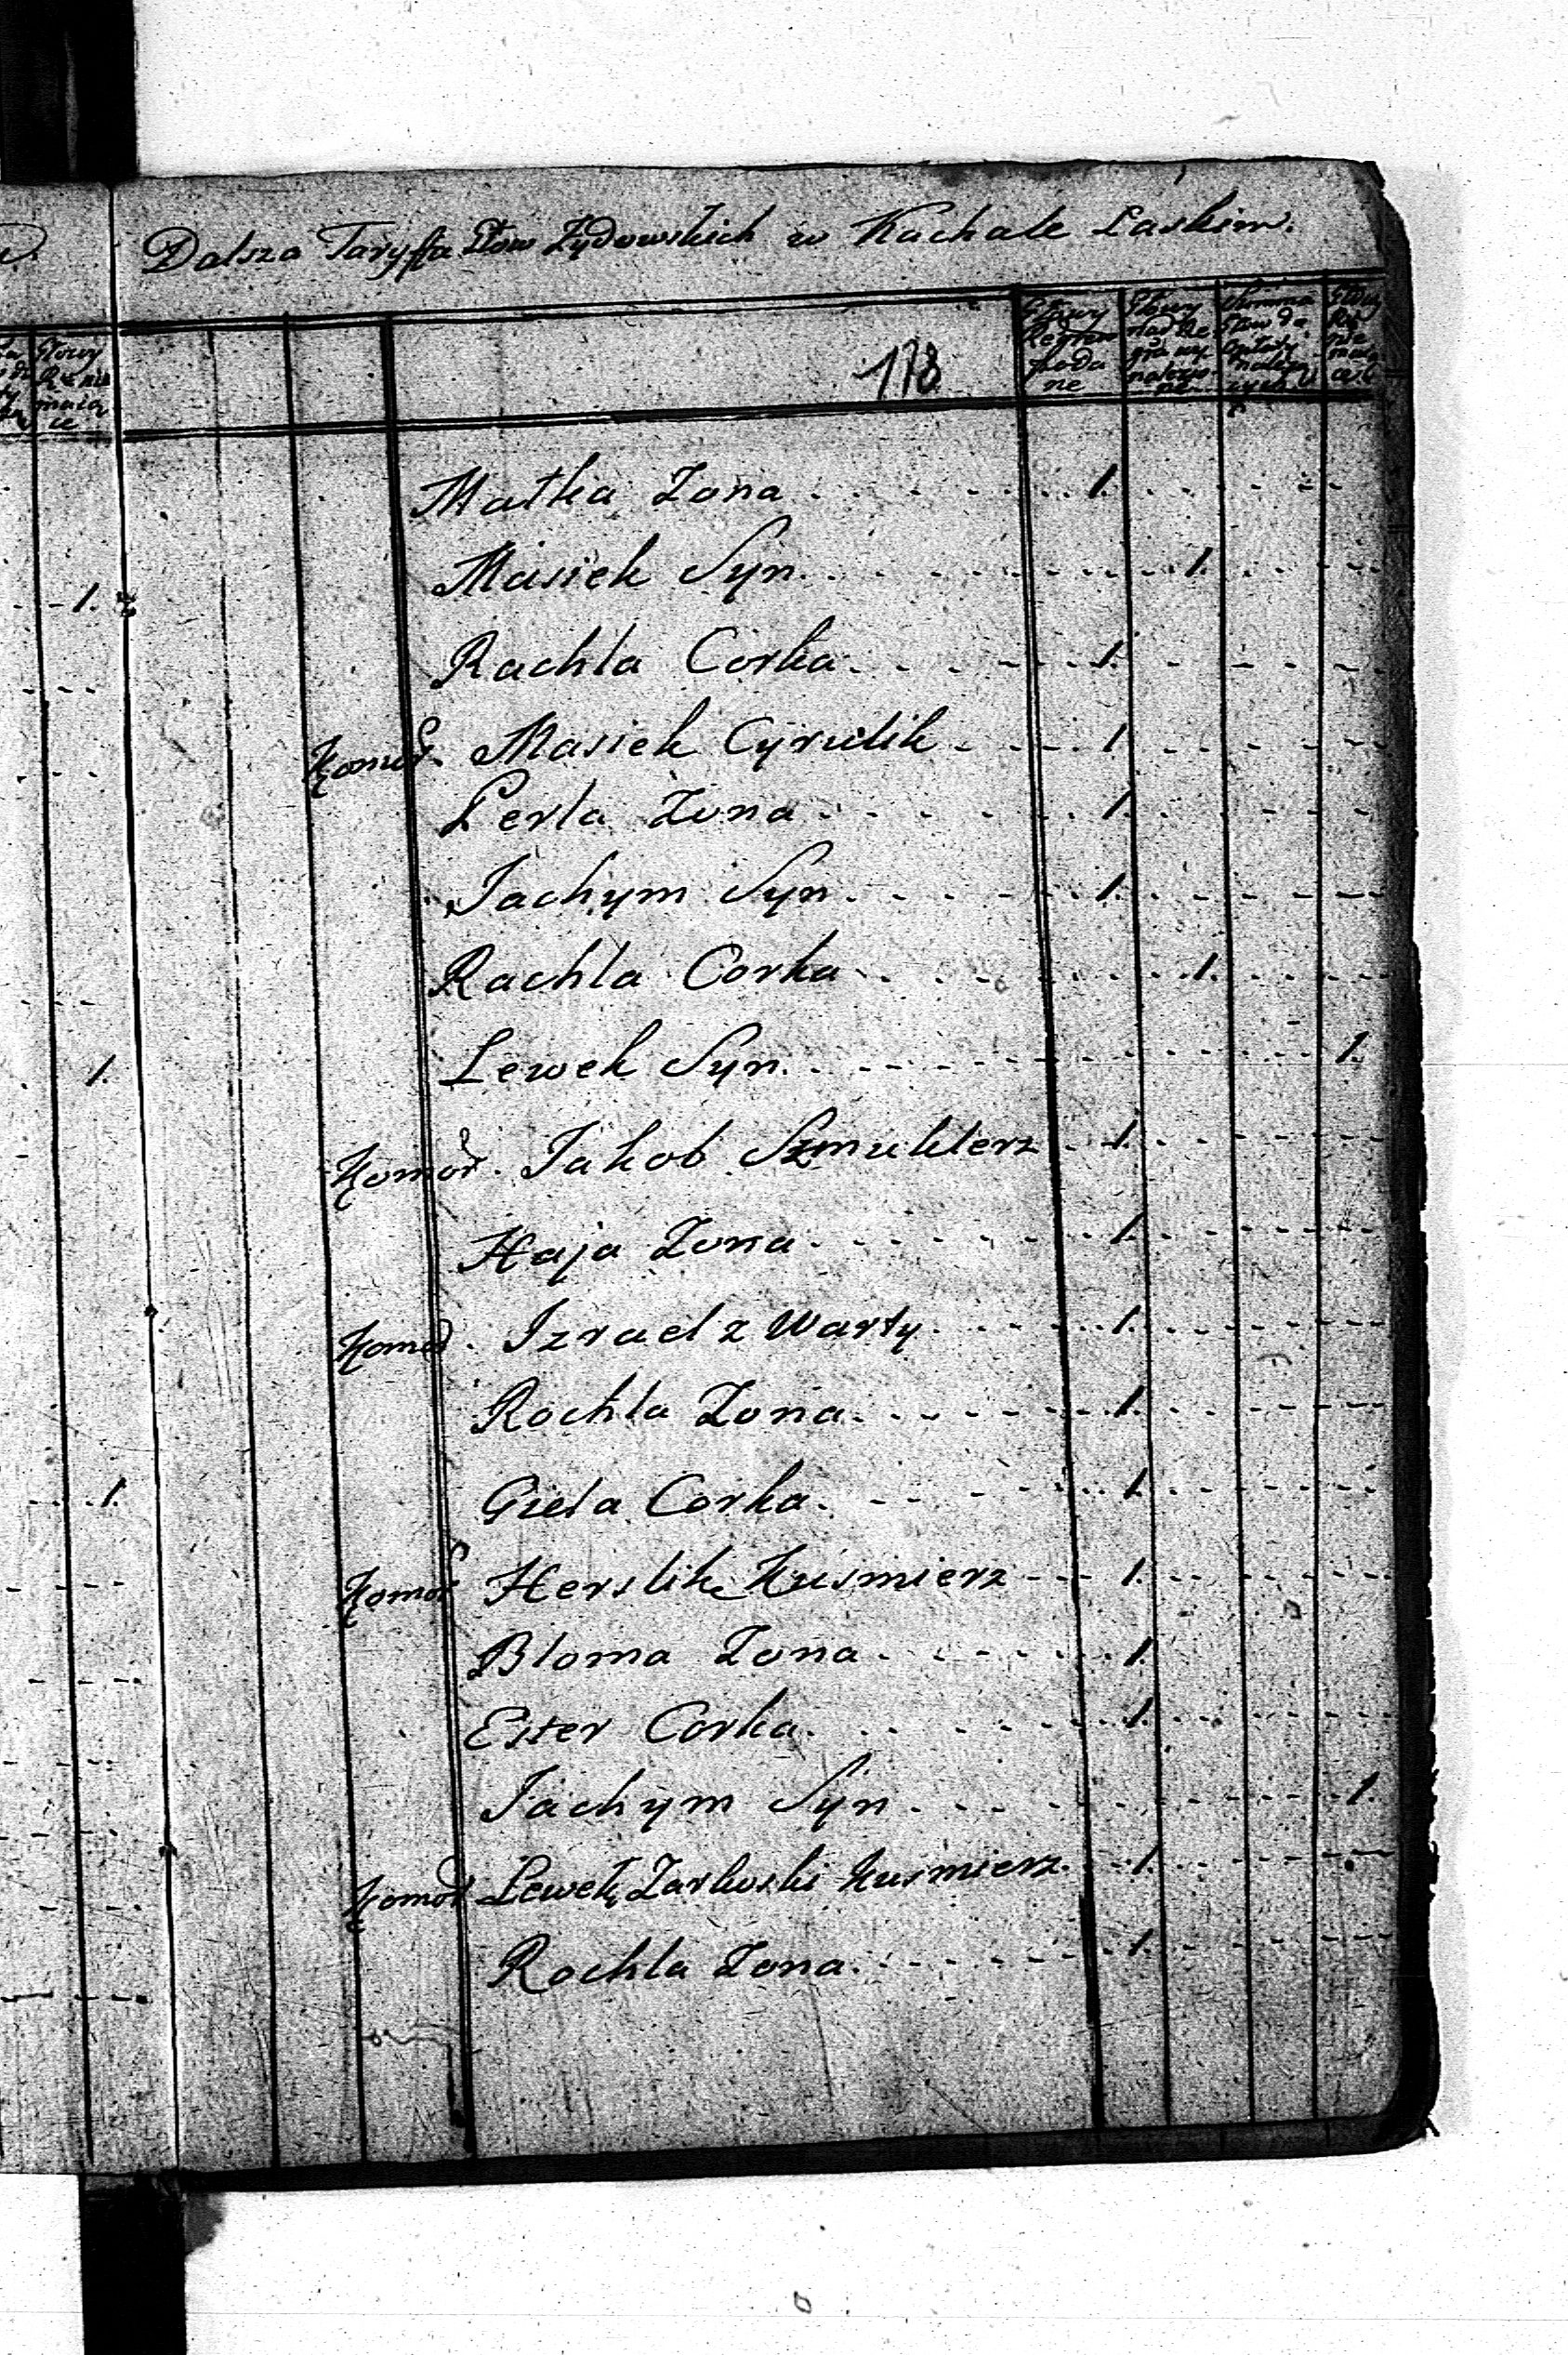 Dalsza Taryffa Głow Żydowskich w Kachale Laskim.
178
Głowy Regestem podane
Głowy nad Re
Summa Głow do
Głowy
Głowy
Matka Zona 1.
Masiek Syn. 1.
Rachla Corka. 1.
Komor. Masiek Cyrulik 1
Perla Zona 1.
Jachym Syn. 1.
Rachla Corka 1.
1.
Lewek Syn. 1.
1.
Komor. Jakob Szmuklerz 1.
Haja Zona 1.
Komor. Izrael z Warty. 1.
Rochla Zona. 1.
1.
Guela Corka. 1.
Komor Herslik Kusmierz 1.
Bloma Zona 1.
Ester Corka. 1.
Jachym Syn 1.
Komor Lewek Zarkoski Kusmierz. 1.
Rochla Zona. 1.